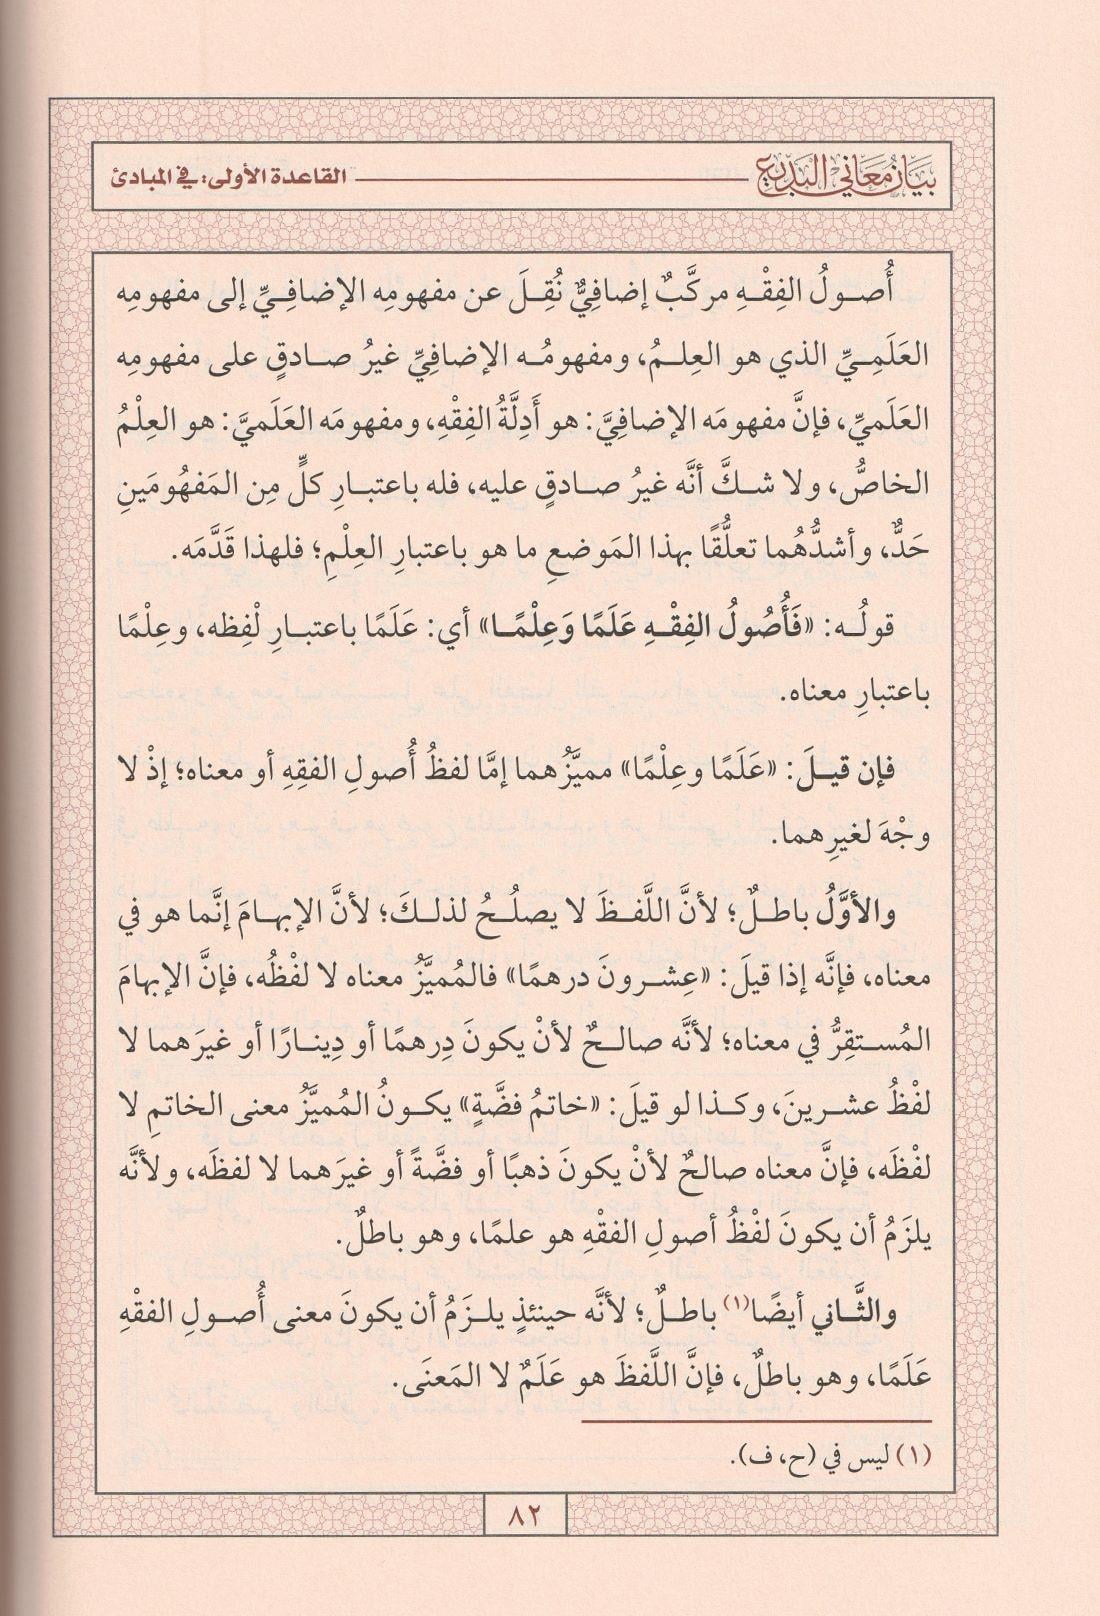 بيان معاني البديع
القاعدة الأولى: في المبادئ
أُصولُ الفِقْهِ مركَّبٌ إضافِيٌّ نُقِلَ عن مفهومِه الإضافِيِّ إلى مفهومِه
العَلَمِيِّ الذي هو العِلمُ، ومفهومُه الإضافِيُّ غيرُ صادقٍ على مفهومِه
العَلَميِّ، فإنَّ مفهومَه الإضافِيَّ: هو أَدِلَّةُ الفِقْهِ، ومفهومَه العَلَميَّ: هو العِلْمُ
الخاصُّ، ولا شكَّ أنَّه غيرُ صادقٍ عليه، فله باعتبارِ كلٍّ مِن المَفهُومَينِ
حَدٌّ، وأشدُّهُما تعلُّقًا بهذا المَوضعِ ما هو باعتبارِ العِلْمِ؛ فلهذا قَدَّمَه.
قولُه: «فَأُصُولُ الفِقْهِ عَلَمًا وَعِلْمًا» أي: عَلَمًا باعتبارِ لْفِظه، وعِلْمًا
باعتبارِ معناه.
فإن قيلَ: «عَلَمًا وعِلْمًا» مميَّزُهما إمَّا لفظُ أُصولِ الفقِهِ أو معناه؛ إذْ لا
وجْهَ لغيرِهما.
والأوَّلُ باطلٌ؛ لأنَّ اللَّفظَ لا يصلُحُ لذلكَ؛ لأنَّ الإبهامَ إنَّما هو في
معناه، فإنَّه إذا قيلَ: «عِشرونَ درهمًا» فالمُميَّزُ معناه لا لفْظُه، فإنَّ الإبهامَ
المُستقِرُّ في معناه؛ لأنَّه صالحٌ لأنْ يكونَ دِرهمًا أو دِينارًا أو غيرَهما لا
لفْظُ عشرينَ، وكذا لو قيلَ: «خاتمُ فضَّةٍ» يكونُ المُميَّزُ معنى الخاتمِ لا
لفْظَه، فإنَّ معناه صالحٌ لأنْ يكونَ ذهبًا أو فضَّةً أو غيرَهما لا لفظَه، ولأنَّه
يلزَمُ أن يكونَ لفْظُ أصولِ الفقْهِ هو علمًا، وهو باطلٌ.
والثَّاني أيضًا(١) باطلٌ؛ لأنَّه حينئذٍ يلزَمُ أن يكونَ معنى أُصولِ الفقْهِ
عَلَمًا، وهو باطلٌ، فإنَّ اللَّفظَ هو عَلَمٌ لا المَعنَى.
(١) ليس في (ح، ف).
٨٢